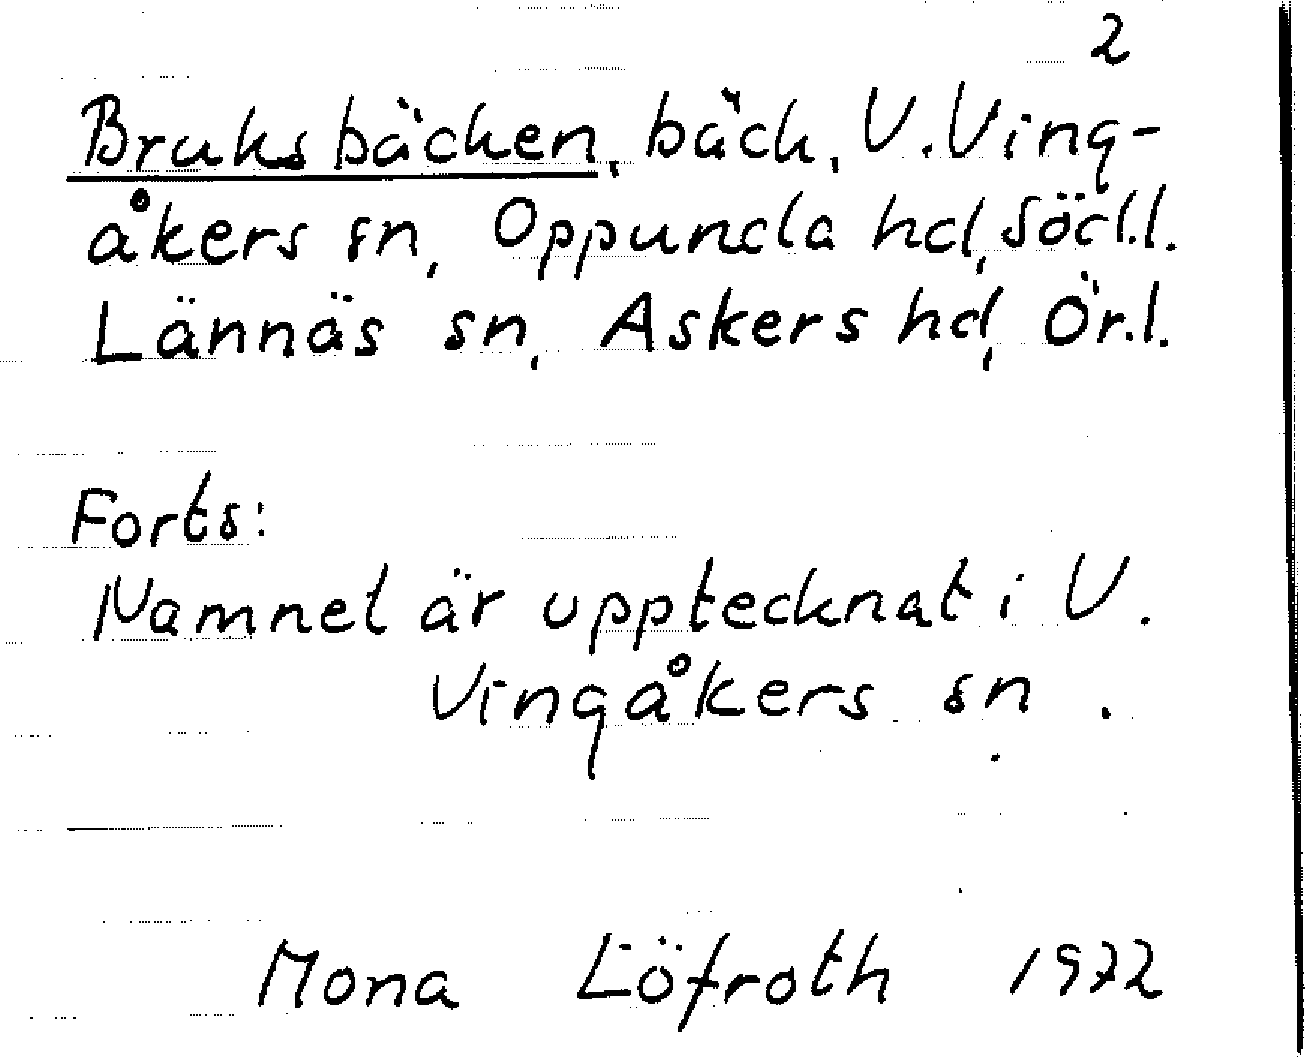 2
Bruksbäcken, bäck, V. Ving-
åkers sn, Oppunda hd, Södl.l.
Lännäs sn, Askers hd, Ör.l.
Forts:
Namnet är upptecknat i V.
Vingåkers sn.
Mona Löfroth 1972